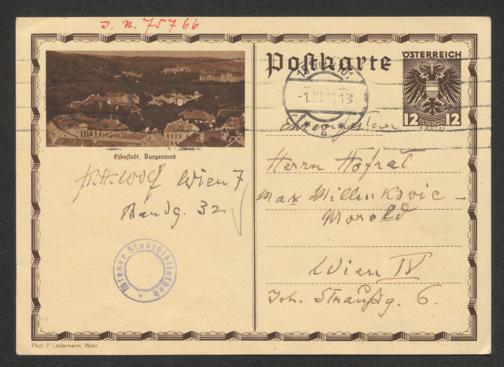 I. N. 75766
Postkarte
ÖSTERREICH
12 12
Eisenstadt, Burgenland
Wien 7
Bandg. 32
Herrn Hofrat
Max Millenkovic-
Morold
Wien IV
Joh. Straußg. 6.
Wiener Stadtbibliothek
Phot. P. Ledermann, Wien